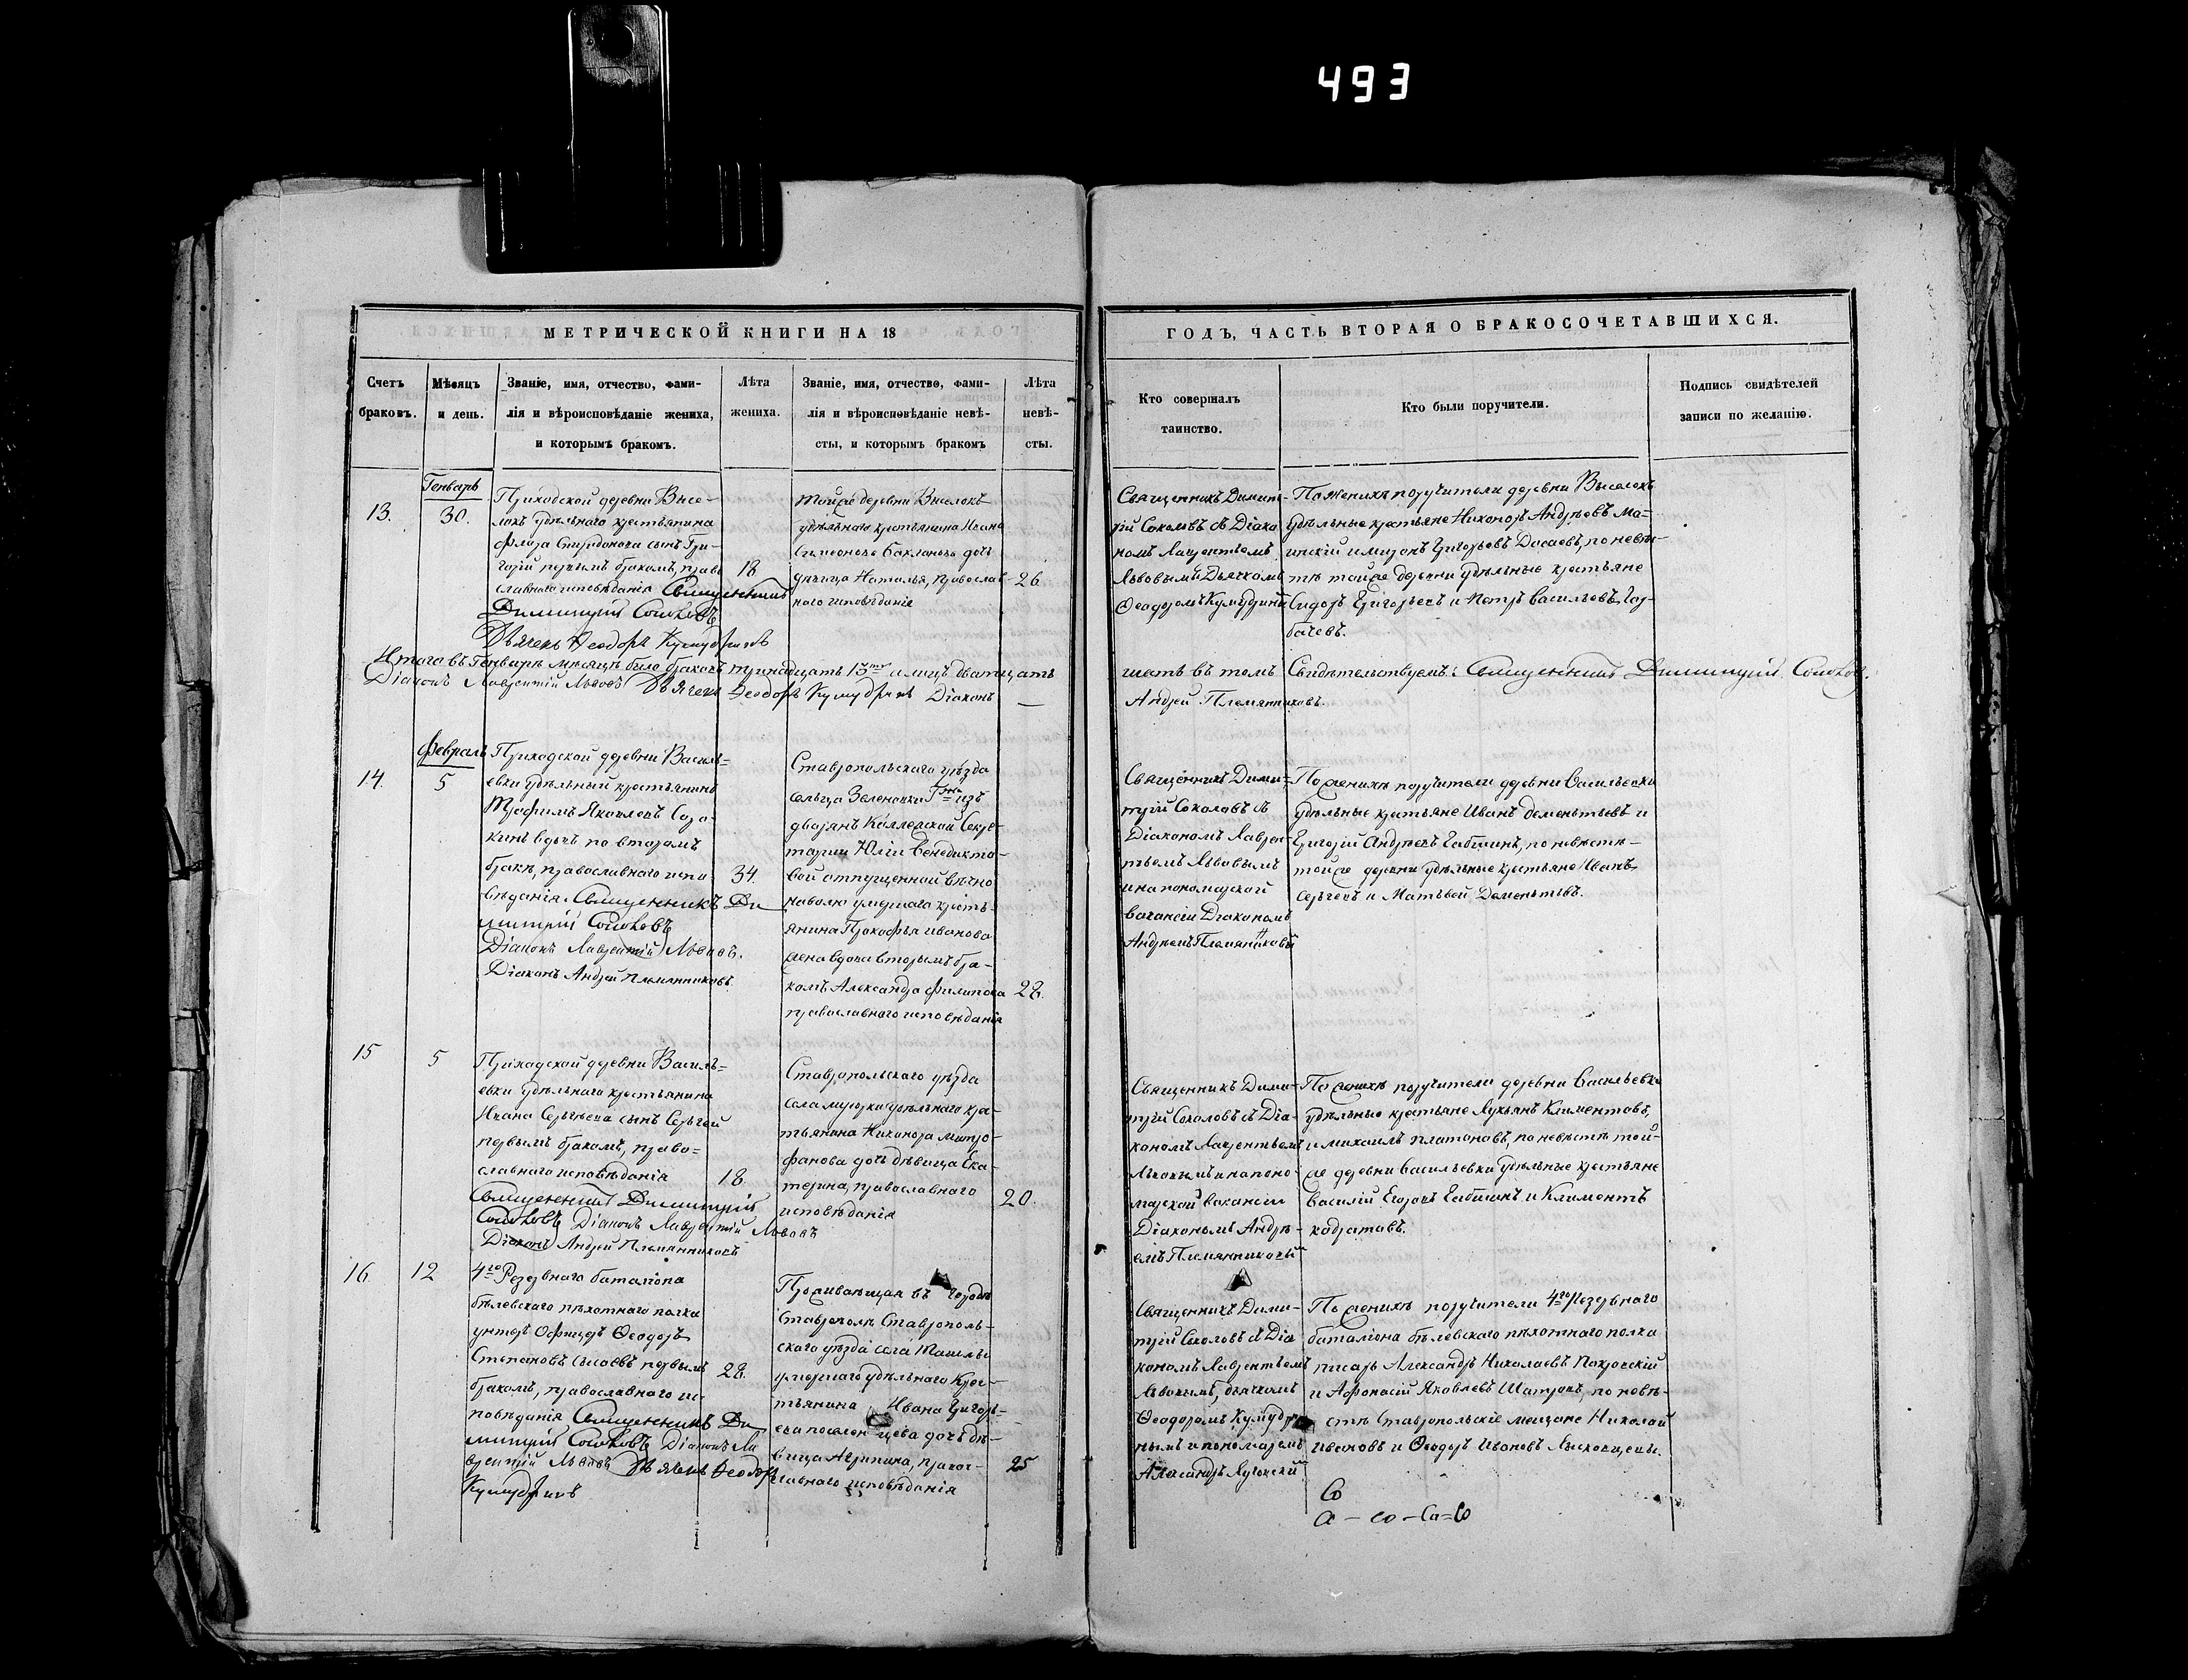 493
МЕТРИЧЕСКОЙ КНИГИ НА 18
Счетъ браковъ.
Мѣсяцъ и день.
Званіе, имя, отчество, фами-
лія и вѣроисповѣданіе жениха,
и которымъ бракомъ.
Лѣта
жениха.
Званіе, имя, отчество, фами-
лія и вѣроисповѣданіе невѣ-
сты, и которымъ бракомъ
Лѣта
невѣ-
сты.
ГОДЪ, ЧАСТЬ ВТОРАЯ О БРАКОСОЧЕТАВШИХСЯ.
Кто совершалъ
таинство.
Кто были поручители.
Подпись свидѣтелей
записи по желанію.
13.
Генварь
30.
Приходской деревни Высе-
локъ удѣльнаго крестьянина
Флора Спиридонова сынъ Гри-
горій первымъ бракомъ, право
славнаго исповѣданія Священникъ
Димитрій Соколовъ
Дьячекъ Ѳеодоръ
18
тойже деревни Выселокъ
удѣльнаго крестьянина Ивана
Симеонова дочь
дѣвица Наталья, православ-
наго исповѣданія
26
Священникъ Димит-
рій Соколовъ съ Діако
номъ Лаврентьемъ
Львовымъ и Дьячкомъ
Ѳеодоромъ
По женихѣ поручители деревни Выселокъ
удѣльные крестьяне Никоноръ Андреевъ Ма-
Григорьевъ по невѣ-
стѣ тойже деревни удѣльные крестьяне
Сидоръ Григорьевъ и Петръ Васильевъ Гор-
бачевъ.
Итого въ Генварѣ мѣсяцѣ было браковъ тринадцать 13ть а лицъ двадцать
Діаконъ Лаврентій Львовъ Дьячекъ Ѳеодоръ Діаконъ
шесть въ томъ Свидѣтельствуемъ: Священникъ Димитрій Соколов.
Андрей Племянниковъ.
14.
Февраль
5
Приходской деревни Василь=
евки удѣльный крестьянинъ
Трофимъ Яковлевъ Соро-
кинъ вдовъ по второмъ
бракѣ, православнаго испо
вѣданія. Священникъ Ди
митрій Соколовъ
Діаконъ Лаврентій Львовъ.
Діаконъ Андрей Племянниковъ.
34.
Ставропольскаго уѣзда
сельца Зеленовки Гжи изъ
дворянъ Коллежской Секре-
тарши Юліи Венедикто-
вой отпущенной вѣчно
наволю умершаго кресть-
янина Прокофья Иванова
жена вдова вторымъ бра-
комъ Александра Филипова
православнаго исповѣданія
28.
Священникъ Дими-
трій Соколовъ съ
Діакономъ Лаврен-
тьемъ Львовымъ
и на пономарской
вакансіи Діакономъ
Андреемъ Племянниковы
По женихѣ поручители деревни Васильевки
удѣльные крестьяне Иванъ Дементьевъ и
Григорій Андреевъ по невѣстѣ-
тойже деревни удѣльные крестьяне Иванъ
Сергѣевъ и Матвѣй Дементьевъ.
15
5
Приходской деревни Василь=
евки удѣльнаго крестьянина
Ивана Сергѣева сынъ Сергѣй
первымъ бракомъ, право=
славнаго исповѣданія
Священникъ Димитрій
Соколовъ Діаконъ Лаврентій Львовъ
Діаконъ Андрей Племянниковъ
18.
Ставропольскаго уѣзда
села удѣльнаго кре-
стьянина Никанора Митро-
фанова дочь дѣвица Ека-
терина, православнаго
исповѣданія
20.
Священникъ Дими-
трій Соколовъ съ Діа-
кономъ Лаврентьемъ
Львовымъ и на поно-
марской вакансіи
Діакономъ Андре-
емъ Племянниковы
По женихѣ поручители деревни Васильевки
удѣльные крестьяне Лукьянъ Климентовъ,
и Михаилъ Платоновъ, по невѣстѣ той-
же деревни Васильевки удѣльные крестьяне
Василій Егоровъ и Климентъ
Кодратовъ.
16
12
4го Резервнаго баталіона
бѣлевскаго пѣхотнаго полка
унтеръ Офицеръ Ѳеодоръ
Степановъ Сысоевъ первымъ
бракомъ, православнаго ис
повѣданія Священникъ Ди
митрій Соколовъ Діаконъ Ла
врентій Львовъ Дьячекъ Ѳеодоръ
28.
Проживающая въ городѣ
Ставрополѣ Ставрополь-
скаго уѣзда села Ташелки
умершаго удѣльнаго Крес-
тьянина Ивана Григорь-
ева дочь дѣ-
вица Агрипина, право-
славнаго исповѣданія
25
Священникъ Дими-
трій Соколовъ съ Діа
кономъ Лаврентьемъ
Львовымъ, дьячкомъ
Ѳеодоромъ
и пономаремъ
По женихѣ поручители 4го Резервнаго
баталіона бѣлевскаго пѣхотнаго полка
писарь Александръ Николаевъ Покровскій
и Афонасій Яковлевъ по невѣ-
стѣ Ставропольскіе мещане Николай
Ивановъ и Ѳеодоръ Ивановъ